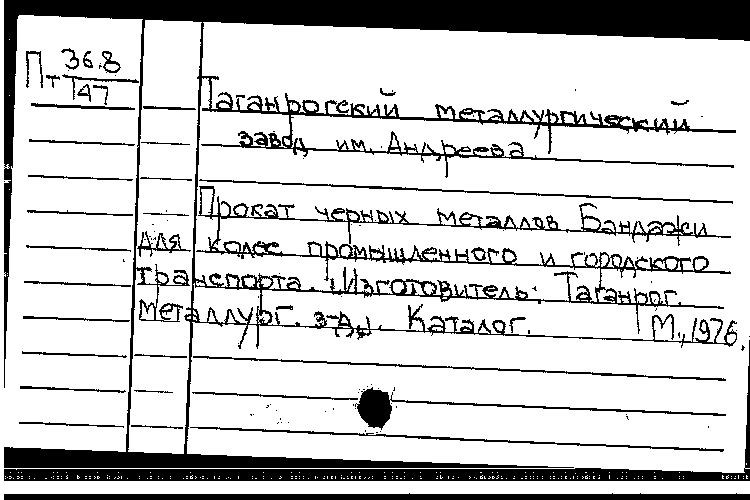 Пт 36.8
147
Таганрогский металлургический
завод им. Андреева.
Прокат черных металлов. Бандажи
для колес промышленного и городского
транспорта. (Изготовитель: Таганрог.
металлург. з-д). Каталог. М., 1976.